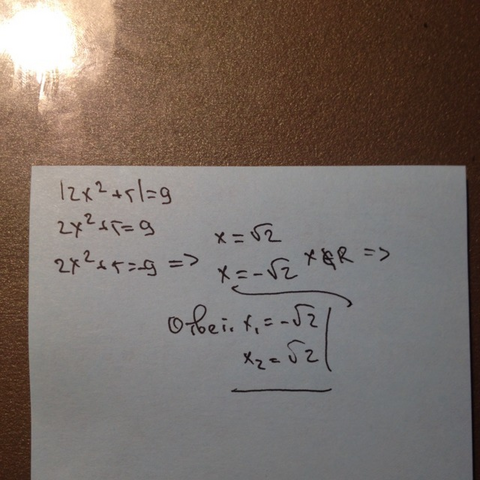 |2x²+5|=9
2x²+5=9
2x²+5=-9 => x=√2
x=-√2 x∉R =>
Ответ: x₁=-√2
x₂=√2